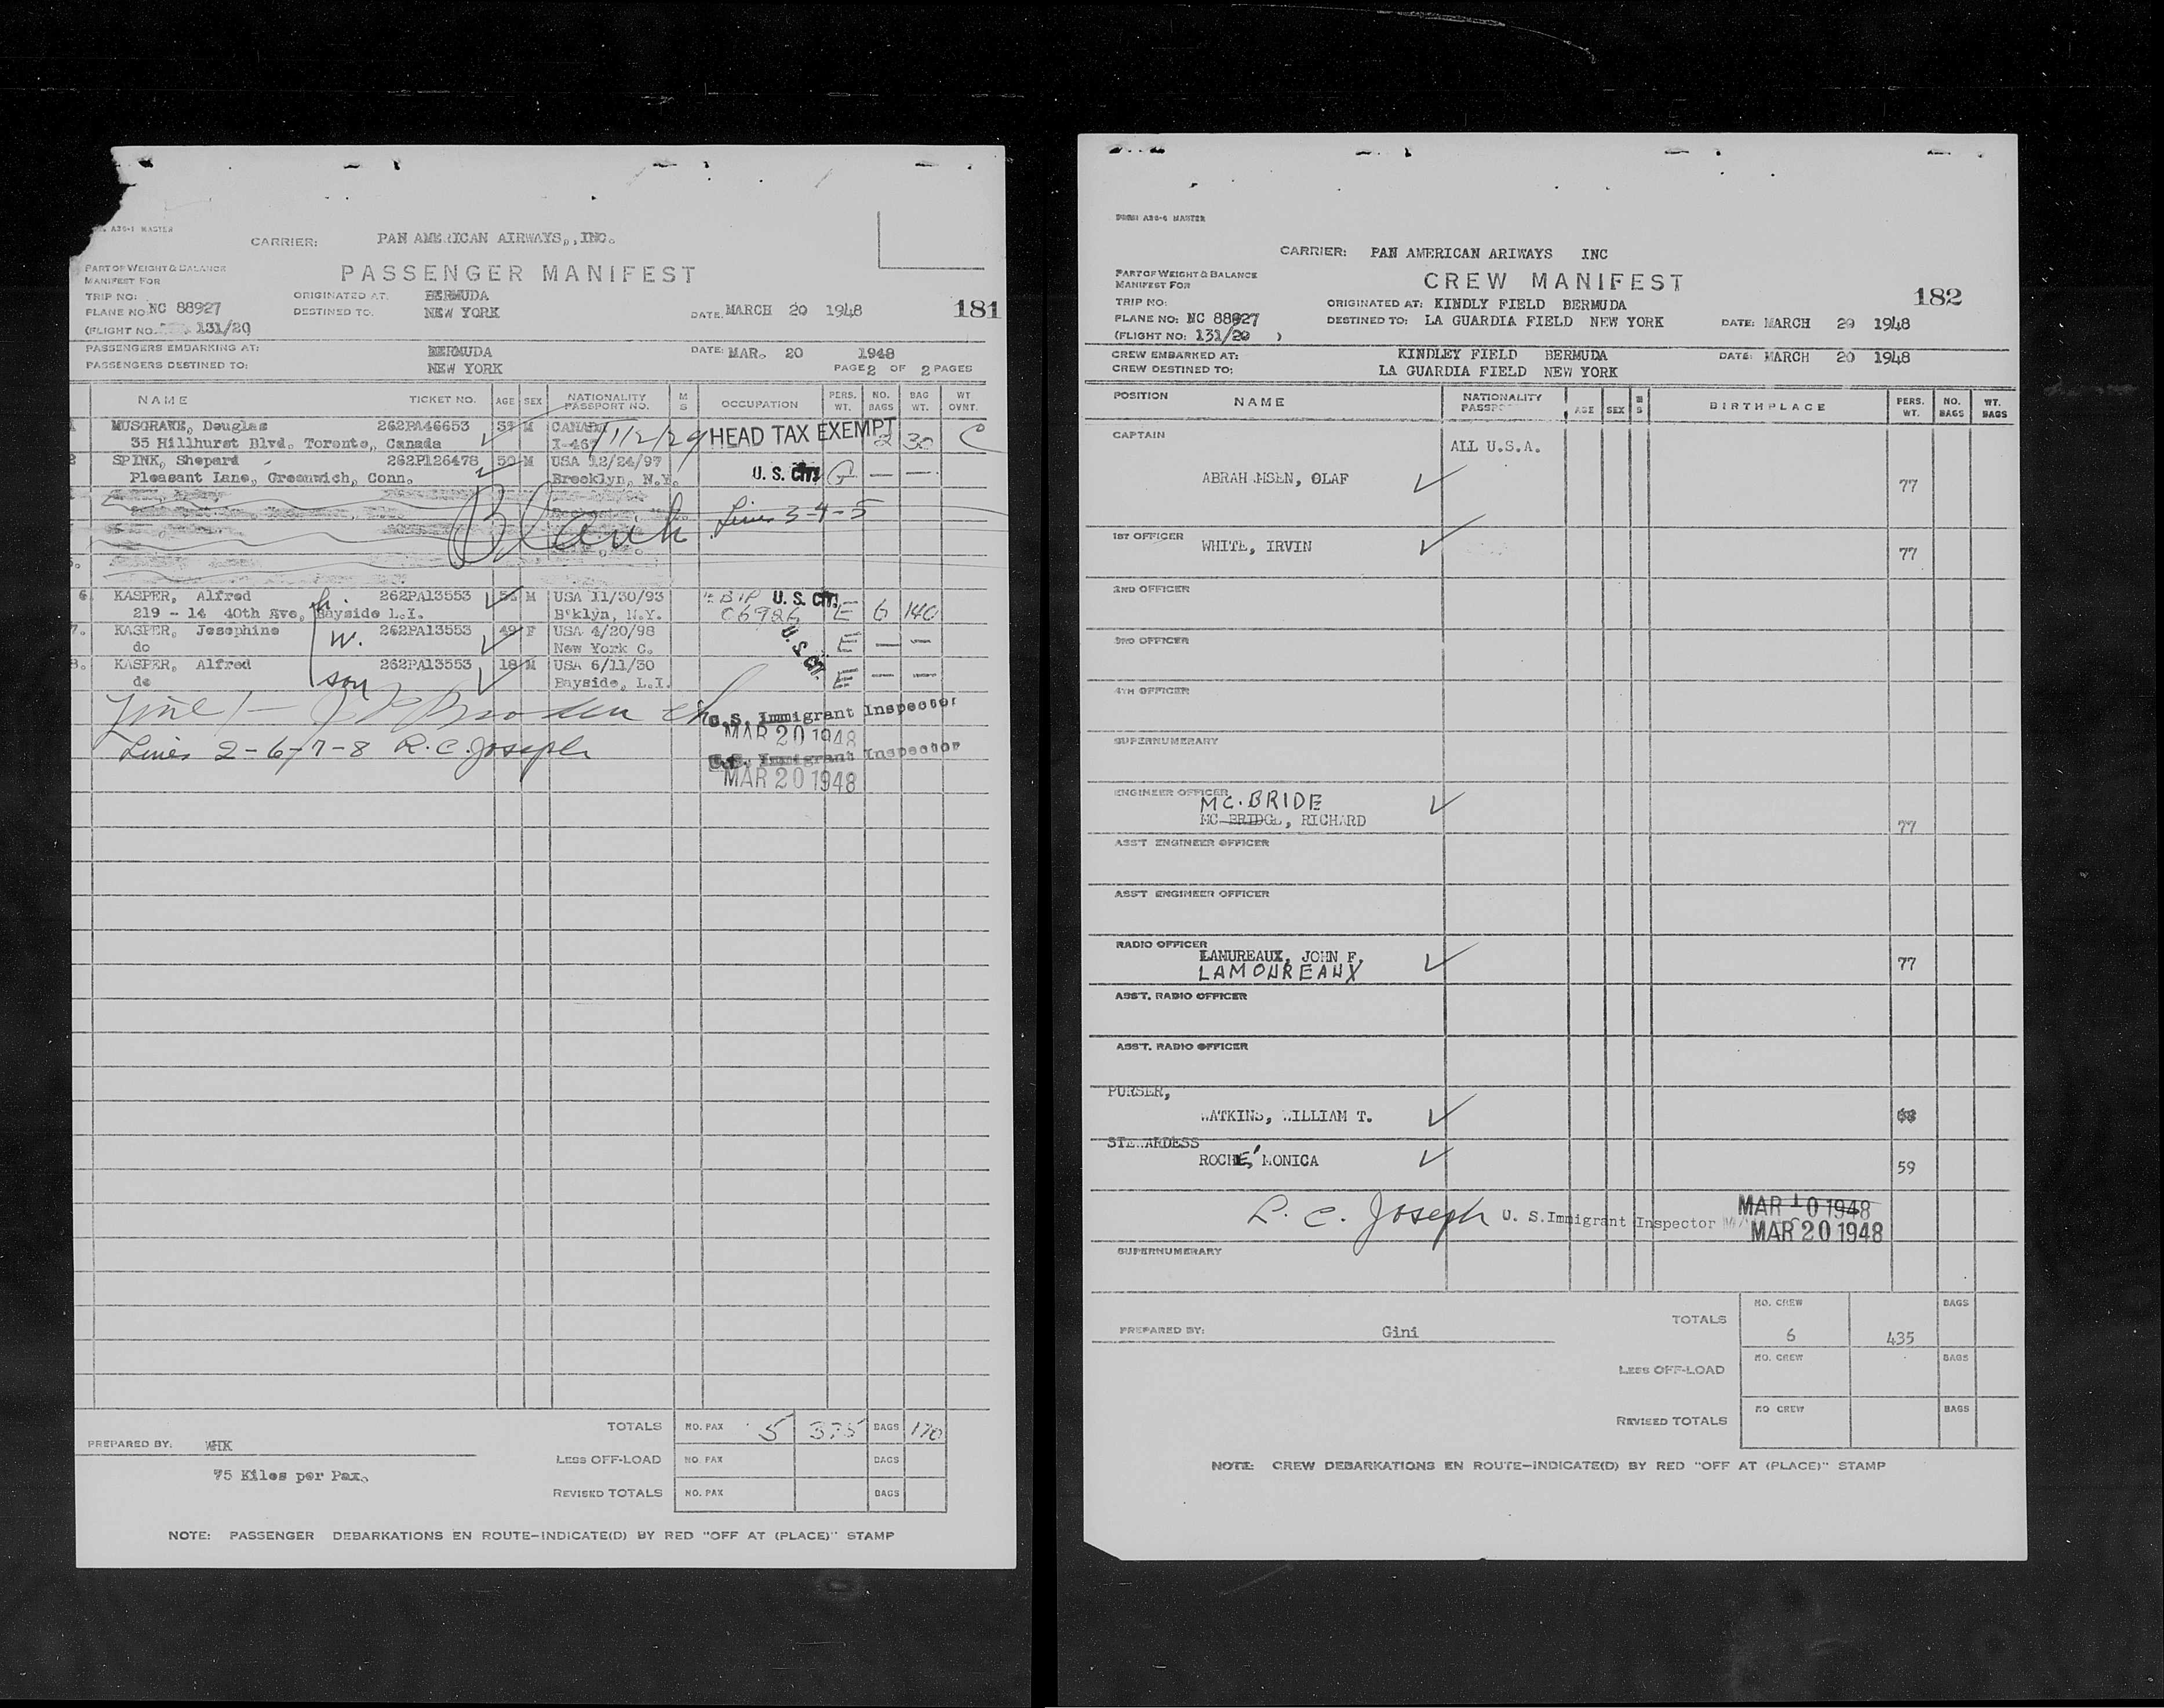 A36-1 MASTER
CARRIER: PAN AMERICAN AIRWAYS,,INC.
PART OF WEIGHT & BALANCE
MANIFEST FOR
PASSENGER MANIFEST
TRIP NO:
ORIGINATED AT. BERMUDA
PLANE NO: NC 88927
DESTINED TO. NEW YORK
DATE. MARCH 20 1948
181
(FLIGHT NO. 131/20
PASSENGERS EMBARKING AT: BERMUDA
DATE: MAR. 20 1948
PASSENGERS DESTINED TO: NEW YORK
PAGE 2 OF 2 PAGES
NAME TICKET NO. AGE SEX NATIONALITY PASSPORT NO. M S OCCUPATION PERS. WT. NO. BAGS BAG WT. WT OVNT.
MUSGRAVE, Douglas 262PA46653 M CANADA
35 Hillhurst Blvd. Toronto, Canada HEAD TAX EXEMPT 2 30 C
SPINK, Shepard 262P126478 50 M USA 12/24/97
Pleasant Lane, Greenwich, Conn. Brooklyn, N.Y. U. S. CIT. G — —
Blank Lines 3-4-5
6. KASPER, Alfred 262PA13553 M USA 11/30/93 U. S. CIT.
219 - 14 40th Ave, Bayside L.I. h. B'klyn, N.Y. E 6 140
7. KASPER, Josephine 262PA13553 49 F USA 4/20/98 U. S. CIT. E — —
do W. New York C.
8. KASPER, Alfred 262PA13553 18 M USA 6/11/30
do son Bayside, L.I. E — —
Line 1 —
U.S. Immigrant Inspector
MAR 20 1948
Lines 2-6-7-8 R.C. Joseph
U.S. Immigrant Inspector
MAR 20 1948
TOTALS NO. PAX 5 375 BAGS 170
PREPARED BY: WHK
LESS OFF-LOAD NO. PAX BAGS
75 Kilos per Pax.
REVISED TOTALS NO. PAX BAGS
NOTE: PASSENGER DEBARKATIONS EN ROUTE-INDICATE(D) BY RED "OFF AT (PLACE)" STAMP
FORM A36-4 MASTER
CARRIER: PAN AMERICAN ARIWAYS INC
PART OF WEIGHT & BALANCE
MANIFEST FOR
CREW MANIFEST
182
TRIP NO:
ORIGINATED AT: KINDLY FIELD BERMUDA
PLANE NO: NC 88927
DESTINED TO: LA GUARDIA FIELD NEW YORK
DATE: MARCH 20 1948
(FLIGHT NO: 131/20 )
CREW EMBARKED AT: KINDLEY FIELD BERMUDA
DATE: MARCH 20 1948
CREW DESTINED TO: LA GUARDIA FIELD NEW YORK
POSITION NAME NATIONALITY PASSPORT AGE SEX M S BIRTHPLACE PERS. WT. NO. BAGS WT. BAGS
CAPTAIN
ALL U.S.A.
ABRAH MSEN, OLAF 77
1ST OFFICER
WHITE, IRVIN 77
2ND OFFICER
3RD OFFICER
4TH OFFICER
SUPERNUMERARY
ENGINEER OFFICER
MC. BRIDE
MC BRIDGE, RICHARD 77
ASS'T ENGINEER OFFICER
ASS'T ENGINEER OFFICER
RADIO OFFICER
LAMUREAUX, JOHN F. 77
LAMOUREAUX
ASS'T. RADIO OFFICER
ASS'T. RADIO OFFICER
PURSER,
WATKINS, WILLIAM T. 68
STEWARDESS
ROCHE, MONICA 59
R. C. Joseph U. S. Immigrant Inspector
MAR 10 1948
MAR 20 1948
SUPERNUMERARY
TOTALS NO. CREW 6 435 BAGS
PREPARED BY: Gini
LESS OFF-LOAD NO. CREW BAGS
REVISED TOTALS NO CREW BAGS
NOTE: CREW DEBARKATIONS EN ROUTE-INDICATE(D) BY RED "OFF AT (PLACE)" STAMP